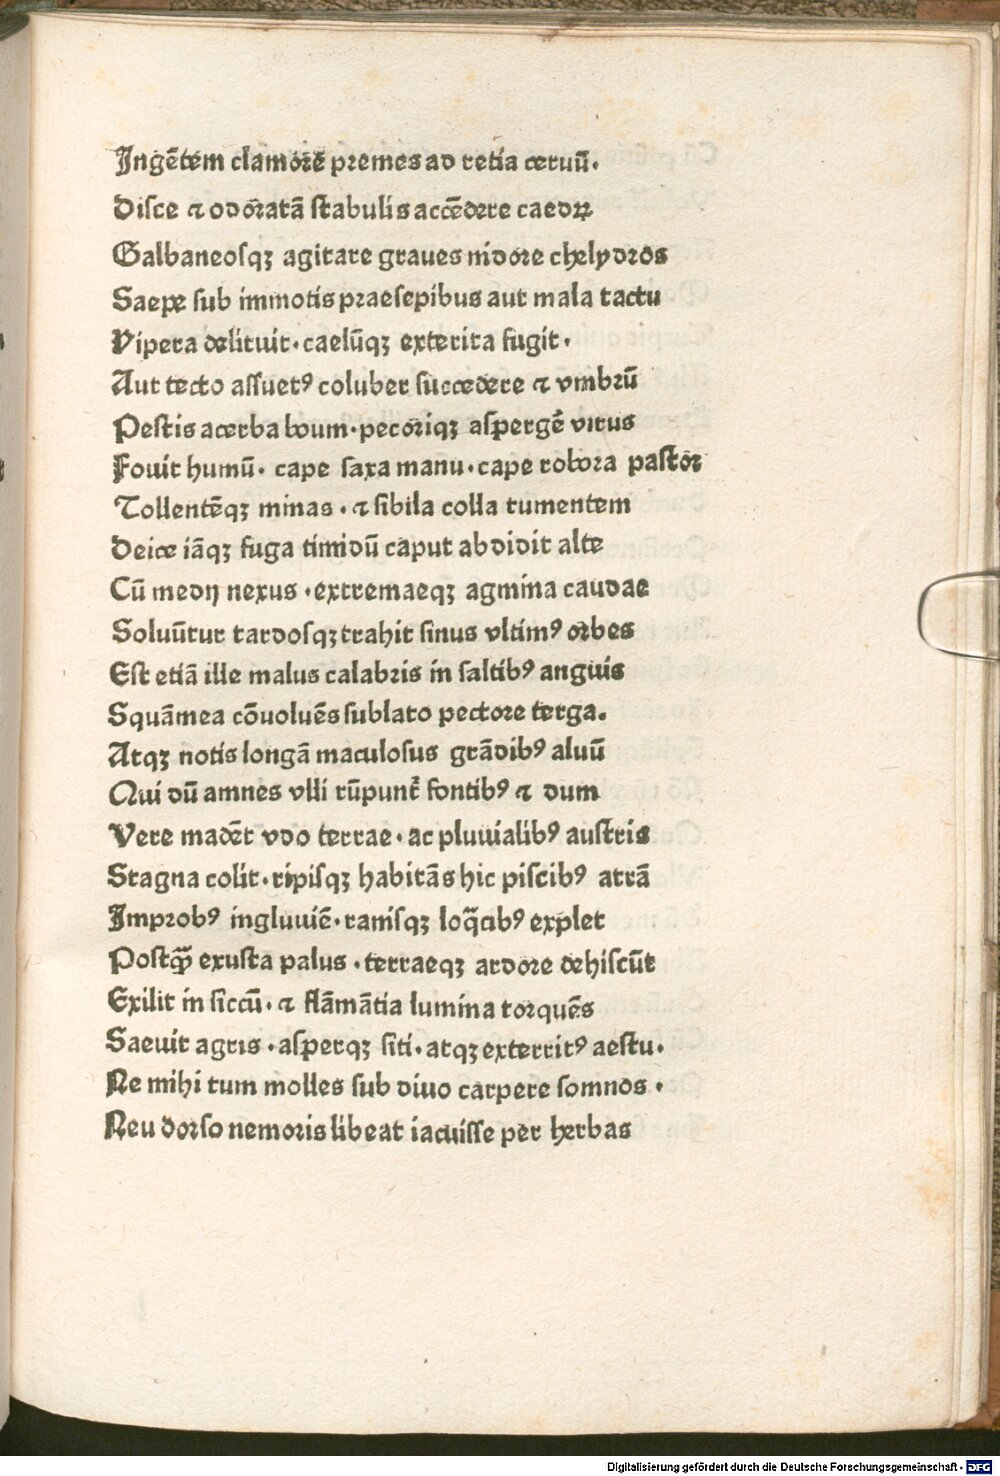 Ingētem clamorē premes ad retia ceruū.
Disce ⁊ odoratā stabulis accēdere caedꝝ
Galbaneosqꝫ agitare graues nidore chelydros
Saepe sub immotis praesepibus aut mala tactu
Vipera delituit·caelūqꝫ exterita fugit.
Aut tecto assuetꝰ coluber succedere ⁊ vmbrū
Pestis acerba boum·pecoriqꝫ aspergē virus
Fouit humū· cape saxa manu·cape robora pastor
Tollentēqꝫ minas·⁊ sibila colla tumentem
Deice iāqꝫ fuga timidū caput abdidit alte
Cū medij nexus·extremaeqꝫ agmina caudae
Soluūtur tardosqꝫ trahit sinus vltimꝰ orbes
Est etiā ille malus calabris in saltibꝰ anguis
Squāmea cōuoluēs sublato pectore terga.
Atqꝫ notis longā maculosus grādibꝰ aluū
Qui dū amnes vlli rūpunt̄ fontibꝰ ⁊ dum
Vere madēt vdo terrae·ac pluuialibꝰ austris
Stagna colit·ripisqꝫ habitās hic piscibꝰ atrā
Improbꝰ ingluuiē·ranisqꝫ loq̄cibꝰ explet
Postq̄ꝫ exusta palus·terraeqꝫ ardore dehiscūt
Exilit in siccū·⁊ flāmātia lumina torquēs
Saeuit agris·asperqꝫ siti·atqꝫ exterritꝰ aestu.
Ne mihi tum molles sub diuo carpere somnos·
Neu dorso nemoris libeat iacuisse per herbas
Digitalisierung gefördert durch die Deutsche Forschungsgemeinschaft - DFG